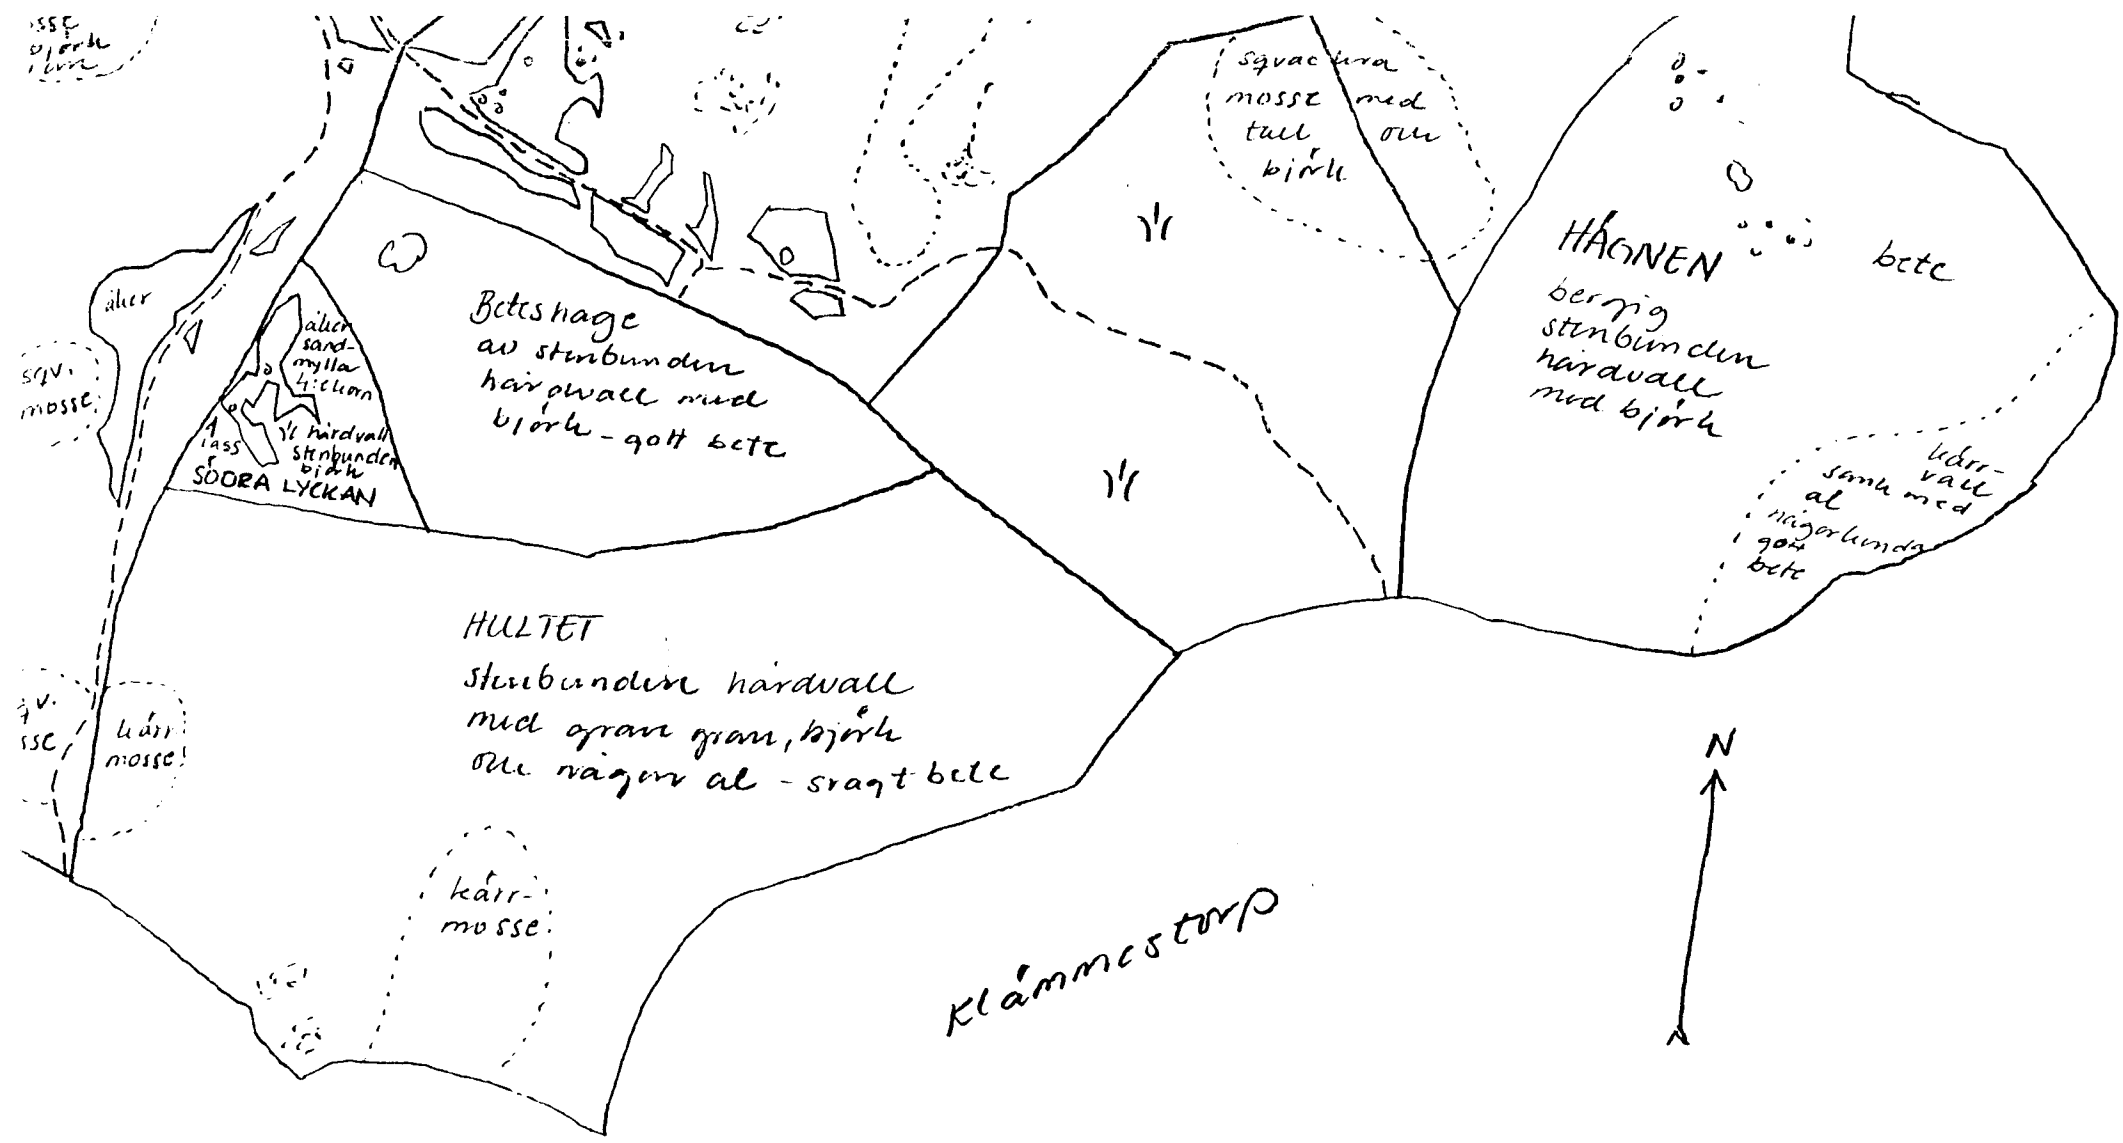 björk
squattra
mosse med
tall och
björk
HAGNEN
bete
bergig
stenbunden
hårdvall
med björk
kärr-
vall
sank med
al
någorlunda
gott
bete
åker
sqv.
mosse
åker
sand-
mylla
4:e korn
1 lass
hårdvall
stenbunden
björk
SÖDRA LYCKAN
Beteshage
av stenbunden
hårdvall med
björk - gott bete
HULTET
stenbunden hårdvall
med gran, björk
och någon al - svagt bete
kärr
mosse
kärr-
mosse
Klämmestorp
N